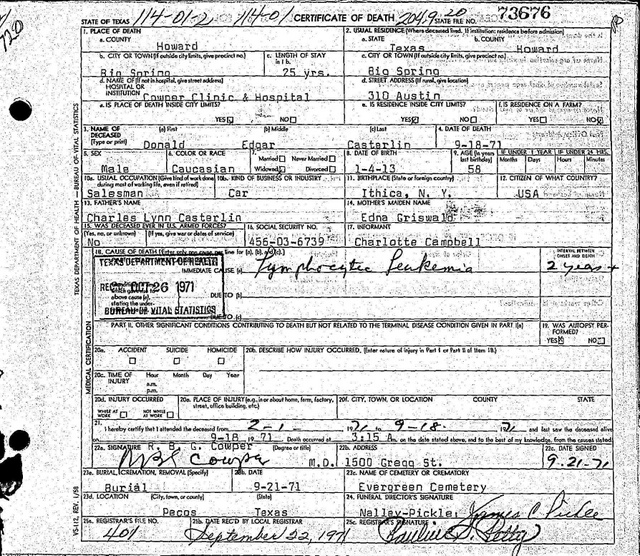 114-01-2 114-01 204.9-20
STATE OF TEXAS CERTIFICATE OF DEATH STATE FILE NO. 73676
1. PLACE OF DEATH 2. USUAL RESIDENCE (Where deceased lived. If institution: residence before admission)
a. COUNTY a. STATE b. COUNTY
Howard Texas Howard
b. CITY OR TOWN (If outside city limits, give precinct no.) c. LENGTH OF STAY in 1 b. c. CITY OR TOWN (If outside city limits, give precinct no.)
Big Spring 25 yrs. Big Spring
d. NAME OF (If not in hospital, give street address) HOSPITAL OR INSTITUTION d. STREET ADDRESS (If rural, give location)
Cowper Clinic & Hospital 310 Austin
e. IS PLACE OF DEATH INSIDE CITY LIMITS? e. IS RESIDENCE INSIDE CITY LIMITS? f. IS RESIDENCE ON A FARM?
YES NO YES NO YES NO
3. NAME OF DECEASED (Type or print) (a) First (b) Middle (c) Last 4. DATE OF DEATH
Donald Edgar Casterlin 9-18-71
5. SEX 6. COLOR OR RACE 7. Married Never Married 8. DATE OF BIRTH 9. AGE (In years last birthday) IF UNDER 1 YEAR IF UNDER 24 HRS.
Months Days Hours Minutes
Male Caucasian Widowed Divorced 1-4-13 58
10a. USUAL OCCUPATION (Give kind of work done during most of working life, even if retired) 10b. KIND OF BUSINESS OR INDUSTRY 11. BIRTHPLACE (State or foreign country) 12. CITIZEN OF WHAT COUNTRY?
Salesman Car Ithica, N. Y. USA
13. FATHER'S NAME 14. MOTHER'S MAIDEN NAME
Charles Lynn Casterlin Edna Griswald
15. WAS DECEASED EVER IN U.S. ARMED FORCES? 16. SOCIAL SECURITY NO. 17. INFORMANT
(Yes, no, or unknown) (If yes, give war or dates of service)
No 456-03-6739 Charlotte Campbell
18. CAUSE OF DEATH (Enter only one cause per line for (a), (b), and (c).) INTERVAL BETWEEN ONSET AND DEATH
TEXAS DEPARTMENT OF HEALTH
IMMEDIATE CAUSE (a) Lymphocytic Leukemia 2 years +
REC'D OCT 26 1971
above cause (a), stating the under- DUE TO (b)
BUREAU OF VITAL STATISTICS DUE TO (c)
PART II. OTHER SIGNIFICANT CONDITIONS CONTRIBUTING TO DEATH BUT NOT RELATED TO THE TERMINAL DISEASE CONDITION GIVEN IN PART I(a) 19. WAS AUTOPSY PERFORMED?
YES NO
20a. ACCIDENT SUICIDE HOMICIDE 20b. DESCRIBE HOW INJURY OCCURRED. (Enter nature of injury in Part I or Part II of item 18.)
20c. TIME OF INJURY Hour Month Day Year
a.m.
p.m.
20d. INJURY OCCURRED 20e. PLACE OF INJURY (e.g. in or about home, farm, factory, street, office building, etc.) 20f. CITY, TOWN, OR LOCATION COUNTY STATE
WHILE AT WORK NOT WHILE AT WORK
21. I hereby certify that I attended the deceased from 2-1 1971 to 9-18 1971 and last saw the deceased alive
on 9-18 1971 Death occurred at 3:15 A. m. on the date stated above, and to the best of my knowledge, from the causes stated.
22a. SIGNATURE R. B. G. Cowper (Degree or title) 22b. ADDRESS 22c. DATE SIGNED
RBG Cowper M.D. 1500 Gregg St. 9-21-71
23a. BURIAL, CREMATION, REMOVAL (Specify) 23b. DATE 23c. NAME OF CEMETERY OR CREMATORY
Burial 9-21-71 Evergreen Cemetery
23d. LOCATION (City, town, or county) (State) 24. FUNERAL DIRECTOR'S SIGNATURE
Pecos Texas Nalley-Pickle, James C Pickle
25a. REGISTRAR'S FILE NO. 25b. DATE REC'D BY LOCAL REGISTRAR 25c. REGISTRAR'S SIGNATURE
401 September 22, 1971
TEXAS DEPARTMENT OF HEALTH — BUREAU OF VITAL STATISTICS
MEDICAL CERTIFICATION
VS-112, REV. 1/58